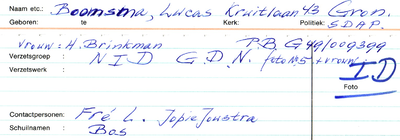 Naam etc.: Boomsma, Lucas Kruitlaan 43 Gron.
Geboren: te Kerk: Politiek: S.D.A.P.
Vrouw: H. Brinkman P.B. G49/009399
Verzetsgroep : N I D G.D.N. foto No 5 + vrouw
Verzetswerk : I D
Foto
Contactpersonen: Fré L. Jopie Joustra
Schuilnaam : Bos